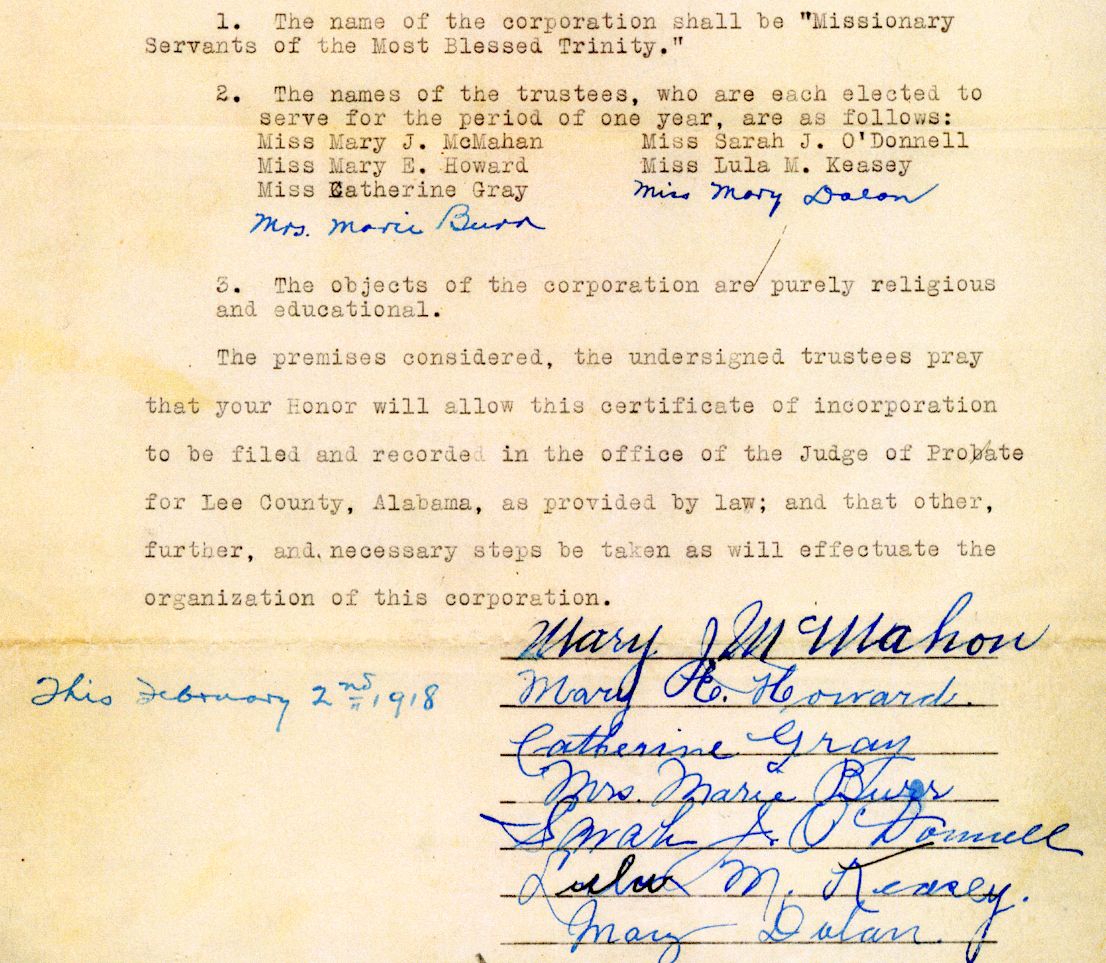 1. The name of the corporation shall be "Missionary
Servants of the Most Blessed Trinity."
2. The names of the trustees, who are each elected to
serve for the period of one year, are as follows:
Miss Mary J. McMahan Miss Sarah J. O'Donnell
Miss Mary E. Howard Miss Lula M. Keasey
Miss Catherine Gray Miss Mary Dolan
Mrs. Marie Burr
3. The objects of the corporation are purely religious
and educational.
The premises considered, the undersigned trustees pray
that your Honor will allow this certificate of incorporation
to be filed and recorded in the office of the Judge of Probate
for Lee County, Alabama, as provided by law; and that other,
further, and necessary steps be taken as will effectuate the
organization of this corporation.
Mary J McMahon
This February 2nd 1918
Mary E. Howard.
Catherine Gray
Mrs. Marie Burr
Sarah J. O'Donnell
Lula M. Keasey.
Mary Dolan.